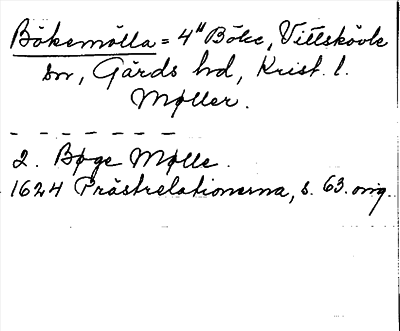 Bökemölla = 4" Böke, Vittskövle
sn, Gärds hd, Krist. l.
Møller.
- - - - - - -
2. Bøge Mølle.
1624 Prästrelationerna, s. 63. orig.